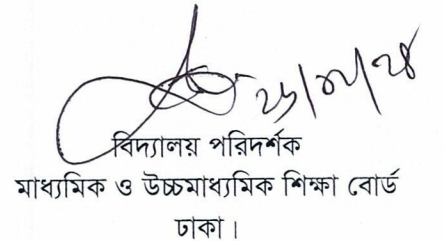 বিদ্যালয় পরিদর্শক
মাধ্যমিক ও উচ্চমাধ্যমিক শিক্ষা বোর্ড
ঢাকা।